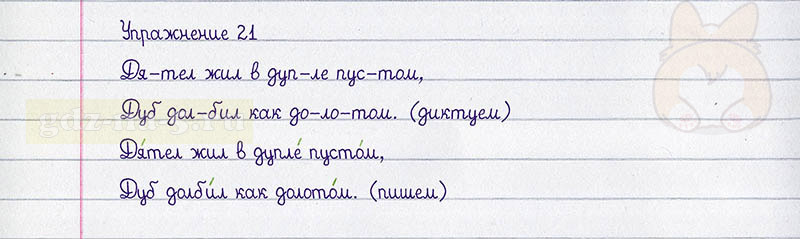 Упражнение 21
Дя-тел жил в дуп-ле пус-том,
Дуб дол-бил как до-ло-том. (диктуем)
Дя́тел жил в дупле́ пусто́м,
Дуб долби́л как долото́м. (пишем)